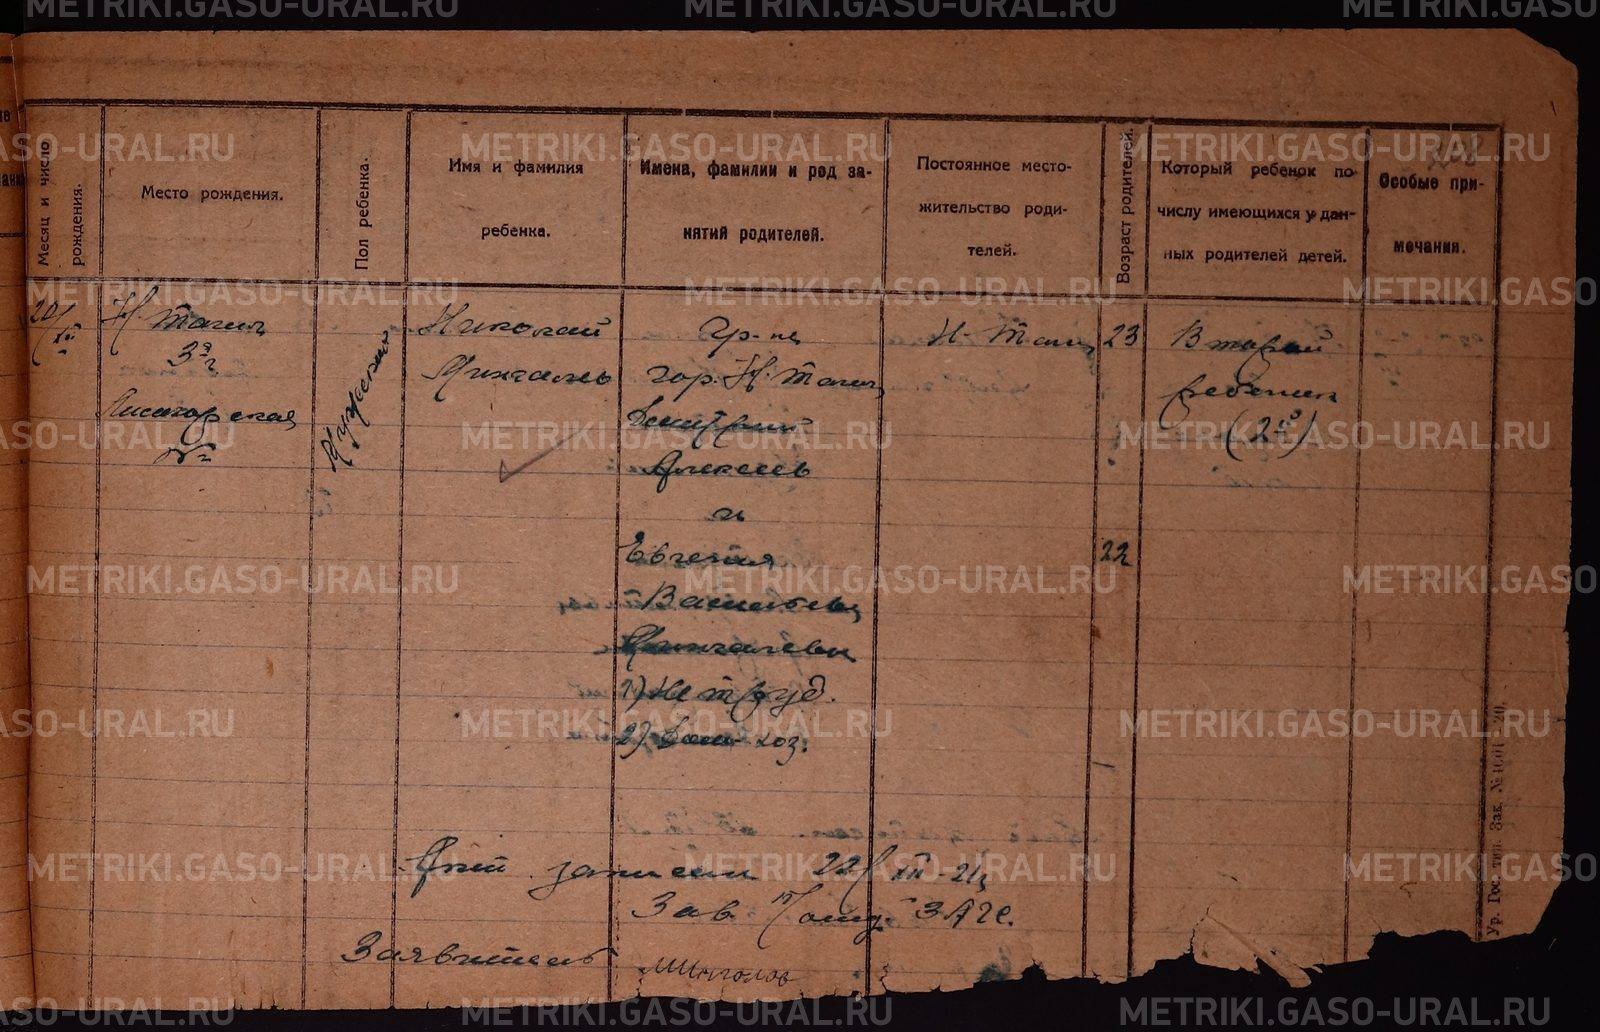 METRIKI.GASO-URAL.RU
Месяц и число рождения.
Место рождения.
Пол ребенка.
Имя и фамилия
ребенка.
Имена, фамилии и род за-
нятий родителей.
Постоянное место-
жительство роди-
телей.
Возраст родителей.
Который ребенок по
числу имеющихся у дан-
ных родителей детей.
Особые при-
мечания.
20/XII
Н. Тагил
3я
Мужской
Николай
Гр-не
гор. Н. Тагил
Дмитрий
Алексеев
и
Евгения
Васильевн
1) Не труд.
2) Дом. хоз.
Н. Тагил
23
22
Второй
ребенок
(2й)
Акт записан 22/XII-21г
Зав. ЗАГС.
Заявитель
Ур. Гос. тип. Зак.